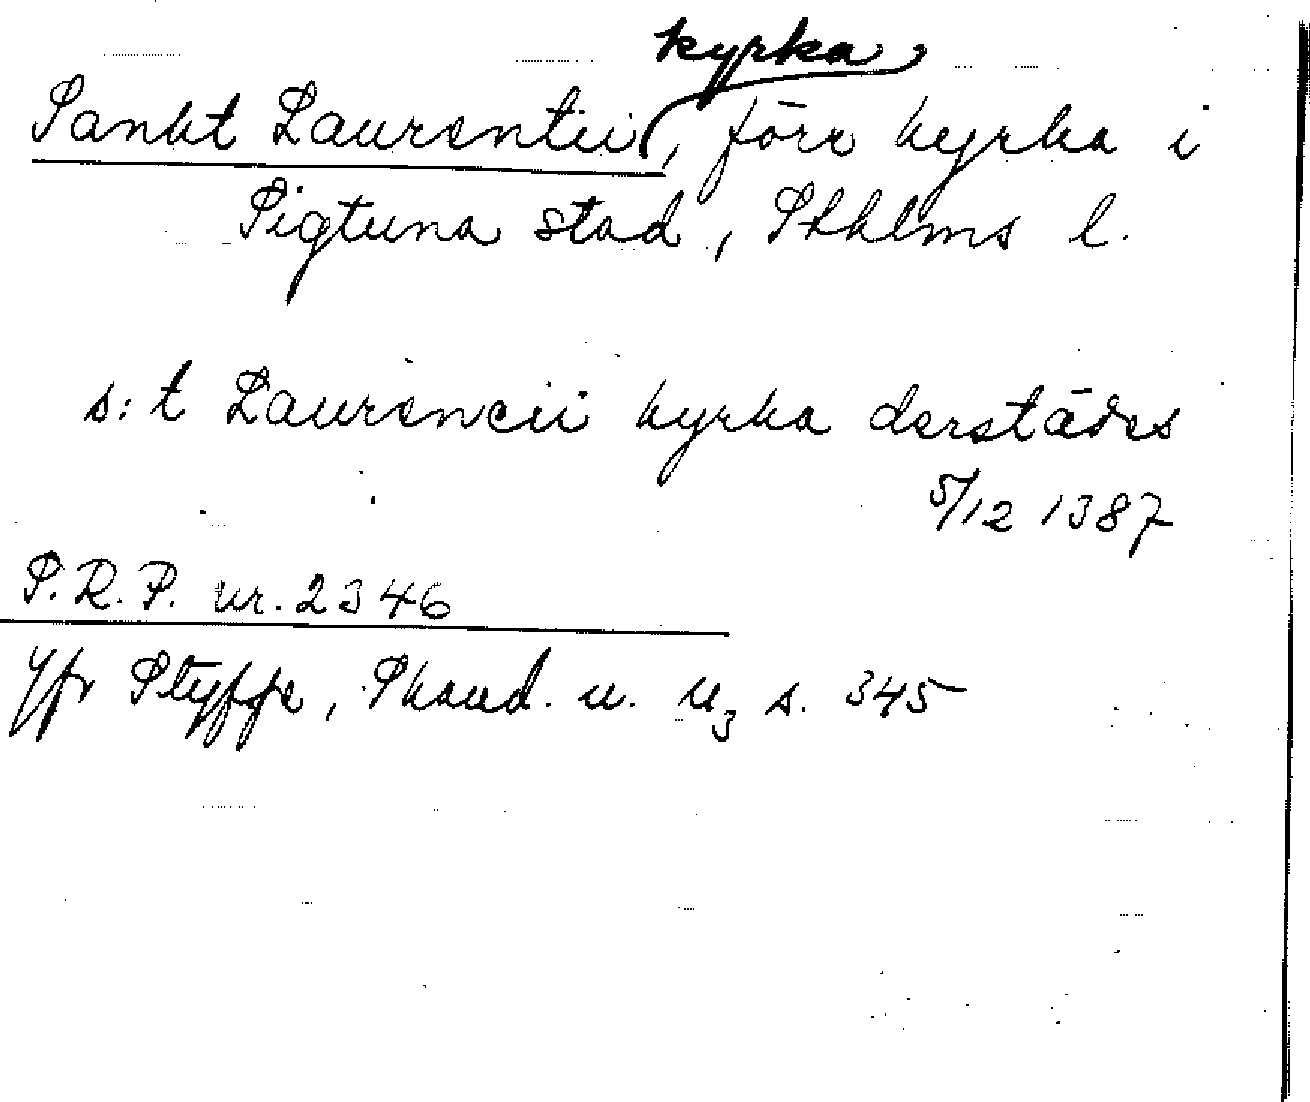 kyrka
Sankt Laurentii, förr kyrka i
Sigtuna stad, Sthlms l.
s:t Laurencii kyrka derstädes
5/12 1387
S.R.P. nr. 2346
Jfr Styffe, Skand. u. U3 s. 345